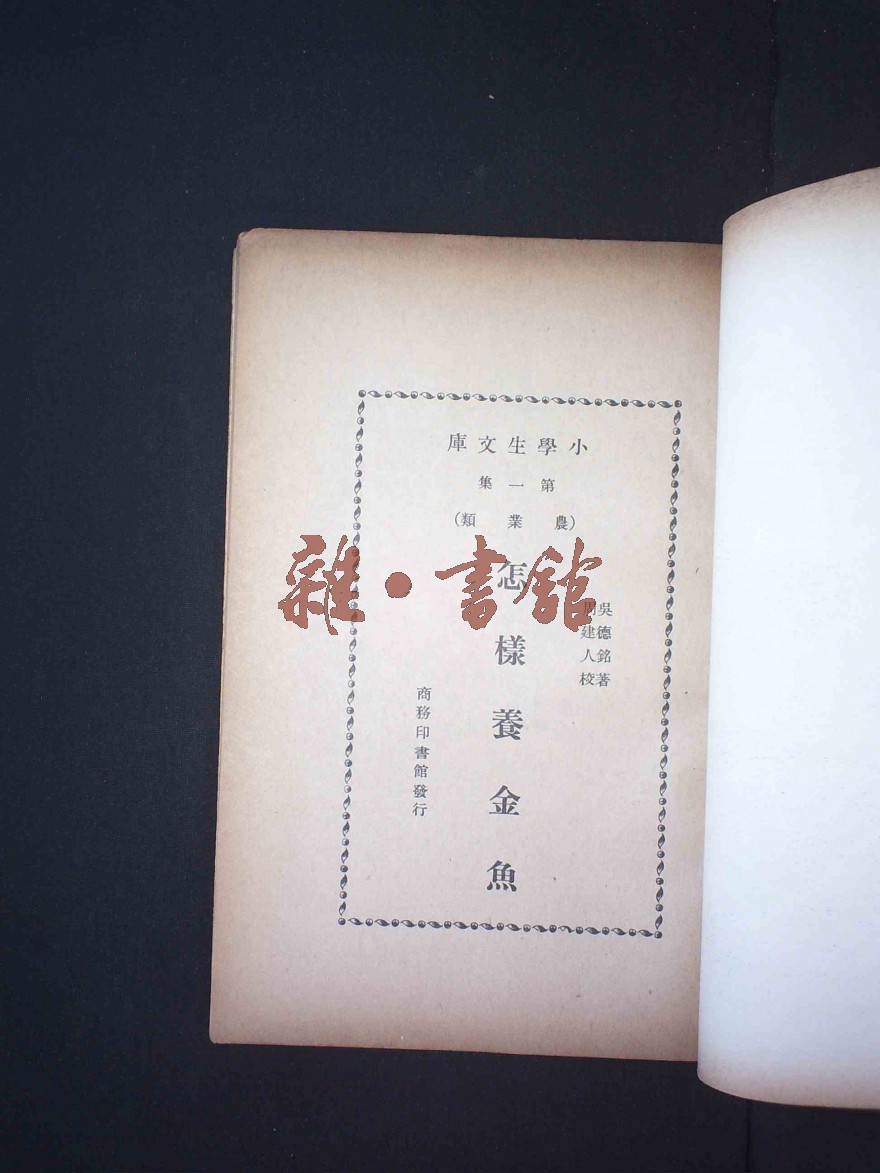 小學生文庫
第一集
(農業類)
吳德銘著
周建人校
怎樣養金魚
商務印書館發行
雜·書館